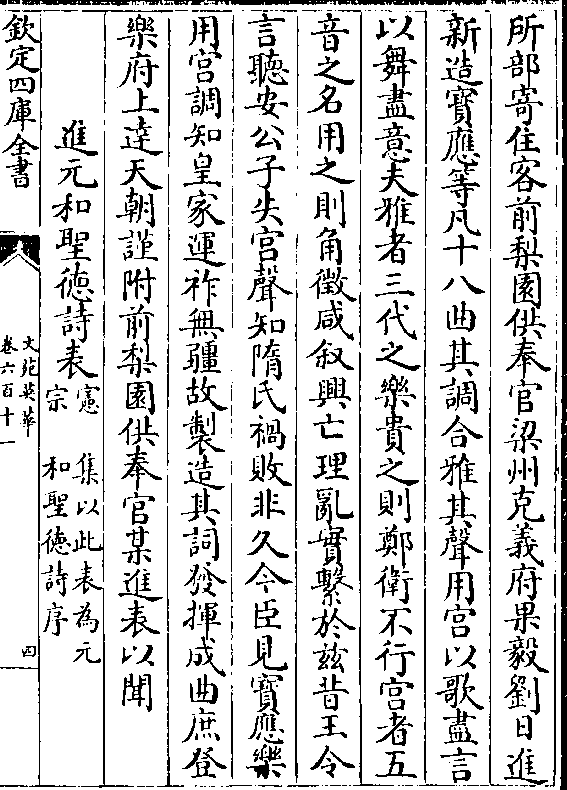 所部寄住客前梨園供奉官梁州克義府果毅劉日進
新造寶應等凡十八曲其調合雅其聲用宫以歌盡言
以舞盡意夫雅者三代之樂貴之則鄭衛不行宫者五
音之名用之則角徵咸叙興亡理亂實繫於兹昔王令
言聽安公子失宫聲知隋氏禍敗非久今臣見寶應樂
用宫調知皇家運祚無疆故製造其詞發揮成曲庶登
樂府上達天朝謹附前梨園供奉官某進表以聞
進元和聖德詩表憲宗 集以此表為元和聖德詩序
欽定四庫全書
文苑英華
卷六百十一
四